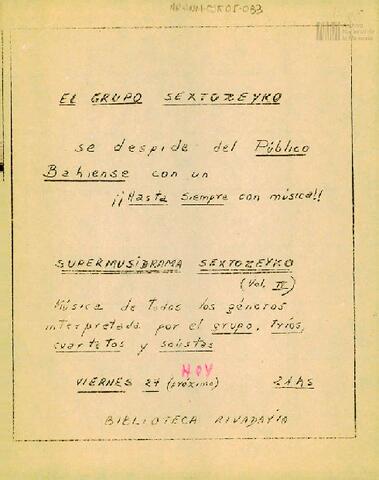 EL GRUPO SEXTOZEYKO
se despide del Público
Bahiense con un
¡¡Hasta siempre con música!!
SUPERMUSIDRAMA SEXTOZEYKO
(Vol. IV)
Música de todos los géneros
interpretada por el grupo, tríos,
cuartetos y solistas
NOV
VIERNES 27 (próximo) 21hs
BIBLIOTECA RIVADAVIA